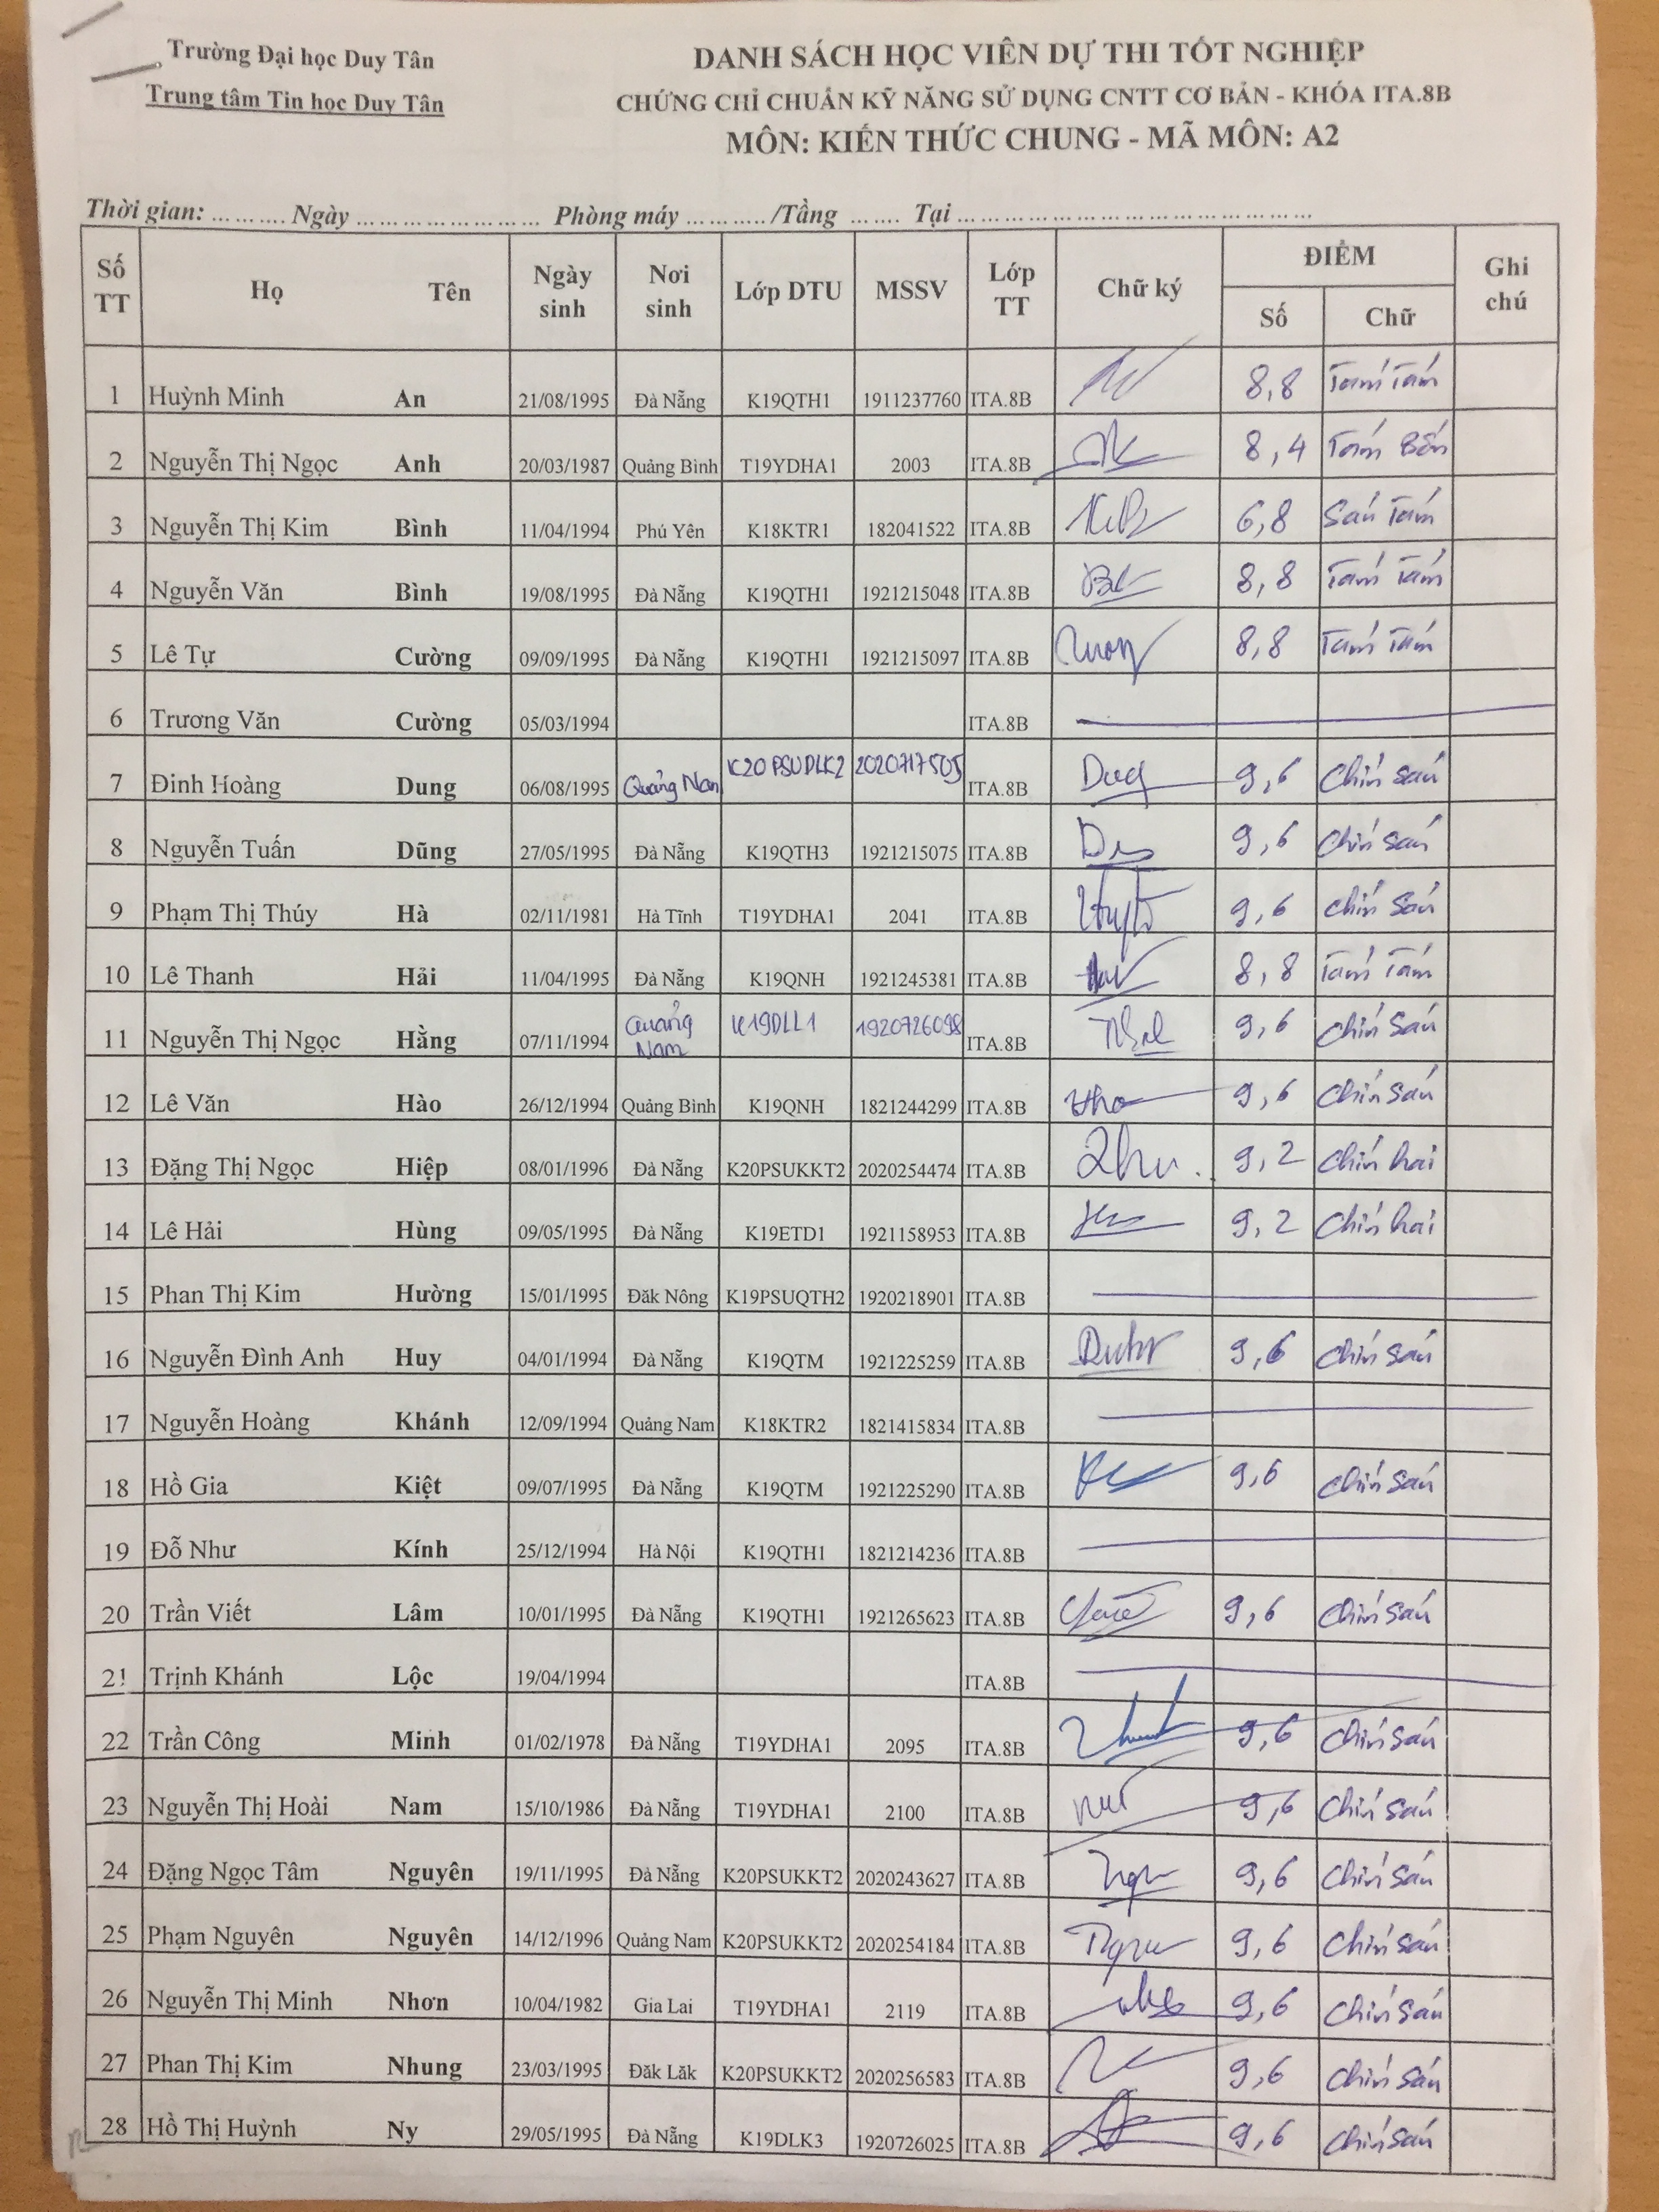 Trường Đại học Duy Tân
Trung tâm Tin học Duy Tân
DANH SÁCH HỌC VIÊN DỰ THI TỐT NGHIỆP
CHỨNG CHỈ CHUẨN KỸ NĂNG SỬ DỤNG CNTT CƠ BẢN - KHÓA ITA.8B
MÔN: KIẾN THỨC CHUNG - MÃ MÔN: A2
Thời gian: ... ... .... Ngày ... ... ... ... ... ... ... Phòng máy ... ... .... /Tầng ... .... Tại ... ... ... ... ... ... ... ... ... ... ... ... ...
Số TT Họ Tên Ngày sinh Nơi sinh Lớp DTU MSSV Lớp TT Chữ ký ĐIỂM Số Chữ Ghi chú
1 Huỳnh Minh An 21/08/1995 Đà Nẵng K19QTH1 1911237760 ITA.8B 8,8 Tám Tám
2 Nguyễn Thị Ngọc Anh 20/03/1987 Quảng Bình T19YDHA1 2003 ITA.8B 8,4 Tám Bốn
3 Nguyễn Thị Kim Bình 11/04/1994 Phú Yên K18KTR1 182041522 ITA.8B 6,8 Sáu Tám
4 Nguyễn Văn Bình 19/08/1995 Đà Nẵng K19QTH1 1921215048 ITA.8B 8,8 Tám Tám
5 Lê Tự Cường 09/09/1995 Đà Nẵng K19QTH1 1921215097 ITA.8B 8,8 Tám Tám
6 Trương Văn Cường 05/03/1994 ITA.8B
7 Đinh Hoàng Dung 06/08/1995 Quảng Nam K20PSUDLK2 2020717505 ITA.8B Dung 9,6 Chín sáu
8 Nguyễn Tuấn Dũng 27/05/1995 Đà Nẵng K19QTH3 1921215075 ITA.8B 9,6 Chín sáu
9 Phạm Thị Thúy Hà 02/11/1981 Hà Tĩnh T19YDHA1 2041 ITA.8B 9,6 Chín Sáu
10 Lê Thanh Hải 11/04/1995 Đà Nẵng K19QNH 1921245381 ITA.8B 8,8 Tám Tám
11 Nguyễn Thị Ngọc Hằng 07/11/1994 Quảng Nam K19DLL1 1920726098 ITA.8B 9,6 Chín Sáu
12 Lê Văn Hào 26/12/1994 Quảng Bình K19QNH 1821244299 ITA.8B 9,6 Chín Sáu
13 Đặng Thị Ngọc Hiệp 08/01/1996 Đà Nẵng K20PSUKKT2 2020254474 ITA.8B 9,2 Chín hai
14 Lê Hải Hùng 09/05/1995 Đà Nẵng K19ETD1 1921158953 ITA.8B 9,2 Chín hai
15 Phan Thị Kim Hường 15/01/1995 Đăk Nông K19PSUQTH2 1920218901 ITA.8B
16 Nguyễn Đình Anh Huy 04/01/1994 Đà Nẵng K19QTM 1921225259 ITA.8B 9,6 Chín Sáu
17 Nguyễn Hoàng Khánh 12/09/1994 Quảng Nam K18KTR2 1821415834 ITA.8B
18 Hồ Gia Kiệt 09/07/1995 Đà Nẵng K19QTM 1921225290 ITA.8B 9,6 Chín Sáu
19 Đỗ Như Kính 25/12/1994 Hà Nội K19QTH1 1821214236 ITA.8B
20 Trần Viết Lâm 10/01/1995 Đà Nẵng K19QTH1 1921265623 ITA.8B 9,6 Chín Sáu
21 Trịnh Khánh Lộc 19/04/1994 ITA.8B
22 Trần Công Minh 01/02/1978 Đà Nẵng T19YDHA1 2095 ITA.8B 9,6 Chín Sáu
23 Nguyễn Thị Hoài Nam 15/10/1986 Đà Nẵng T19YDHA1 2100 ITA.8B 9,6 Chín Sáu
24 Đặng Ngọc Tâm Nguyên 19/11/1995 Đà Nẵng K20PSUKKT2 2020243627 ITA.8B 9,6 Chín Sáu
25 Phạm Nguyên Nguyên 14/12/1996 Quảng Nam K20PSUKKT2 2020254184 ITA.8B 9,6 Chín Sáu
26 Nguyễn Thị Minh Nhơn 10/04/1982 Gia Lai T19YDHA1 2119 ITA.8B 9,6 Chín Sáu
27 Phan Thị Kim Nhung 23/03/1995 Đăk Lăk K20PSUKKT2 2020256583 ITA.8B 9,6 Chín Sáu
28 Hồ Thị Huỳnh Ny 29/05/1995 Đà Nẵng K19DLK3 1920726025 ITA.8B 9,6 Chín Sáu